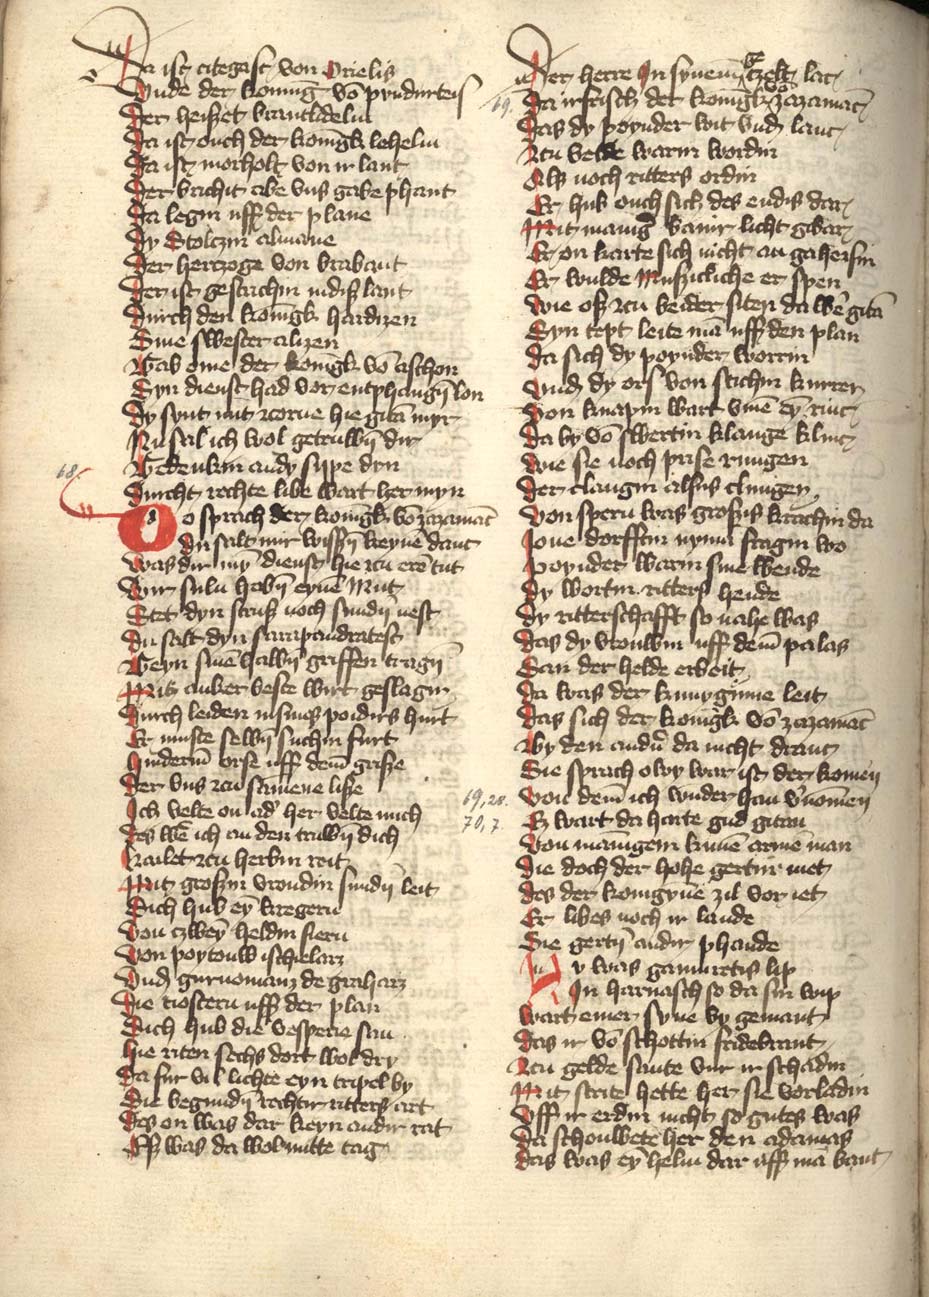 Da ist citegast von Orielis
Vnde der konnig vō prurdurteis
Der heiszet brantlidelin
Da ist ouch der konīgk lehelin
Da ist morholt von ir lant
Der brichit abe vns gabe phant
Da legin uff der plane
Dy Stolczin almane
Der hertzoge von brabant
Der ist gestrichin in disz lant
Durch den konīgk hardizen
Sine swester alizen
Gab ome der konīgk vō gaschon
Syn dienst had vor entphangin lon
Dy synt mit zcorne hie gītā myr
Nu sal ich wol getruwin dir
Gedenkin an dy sippe dyn
Durcht rechte libe wart her myn
68.
Do sprach der konīgk vō zazamāc
du salt mir wissin keynē danc
Was dir myn dienst hie zcu erē tut
Wir suln habin eynē Mut
Stet dyn strusz noch sundir nest
Du salt dyn sarapandratest
Geyn sinē halbin griffen tragin
Mit anker veste wirt geslagin
Durch leiden in sines poidirs hurt
Er muste selbir suchin furt
Hinderm orse uff dem grise
Der vns zcu samene lise
Ich velte on adˀ her velte mich
des wer ich an den truwin dich
kailet zcu herbin reit
Mit groszin vroudin sundir leit
Sich hub ey kregern
Von czweyn heldin siern
Von poytouw ischelarz
Vnd gurnomanz de graharz
Die tiostern uff der plan
Sich hub die vesperie san
hie riten sechs dort wol dry
Da fur vil lichte eyn tripel by
Die begundin rechtir ritters art
des on was dar keyn andir rat
Esz was da wol mitte tag
Der herre In synem czelt lac
69.
Da irfrisch der konīgk vō zazamāc
Das dy poynder wit vnd lanc
Zcu velde warin wordin
Als noch ritters ordin
Er hub ouch sich des endis dar
Mit manigē banir licht gibar
Er on karte sich nicht an gaherfin
Er wulde Muszickliche er spen
Wie osz zcu beider siten da wer gitā
Syn tept leite mā uff den plan
Da sich dy poynder worrin
vnd dy ors von stichin kurrer
Von knapin wart vmē ey rinc
Da by vō swertin klange klinc
Wie sie noch prise rungen
Der clangin alsus clungen
Von spern was groszis krachin da
Jone dorfftin nymā fragin wo
Poynder warin sine wende
Dy wortin ritters hende
Dy ritterschafft so nahe was
Das dy vrouwin uff dem palas
San der helde erbeit
Da was der kunyginne leit
Das sich der konīgk vō zazamāc
By den andˀn da nicht dranc
Sie sprach owy war ist der komen
69,28. Von dem ich wnder han vˀnomen
70,7. Esz wart da harte gud gitan
Von mānigem kunē armē man
Die doch der hohe gertin niet
des der konigynē zil vor iet
Er libes noch ir lande
Sie gertin andir phande
Nu was gamuretis lip
In harnasch so da sin wip
Wart einer syne by gemant
Das ir vō schottin fridebrant
Zcu gelde sante vur ir schadin
Mit strite hette her sie vorladin
Vff ir erdin nicht so gutes was
Da schouwete her den adamas
Das was ey helm dar uff mā bant